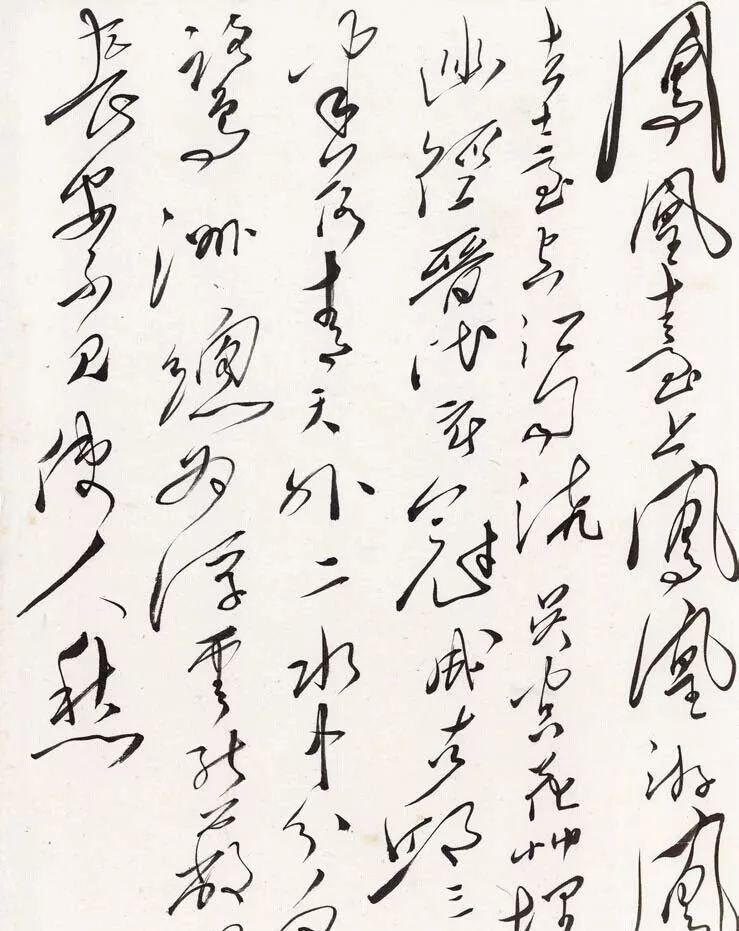 鳳凰臺上鳳凰游鳳
去臺空江自流吳宮花艸埋
幽徑晉代衣冠成古邱三
山半落青天外二水中分白
鷺洲總為浮雲能蔽
長安不見使人愁